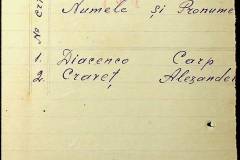 No crt Numele și Pronume
1. Diacenco Carp
2. Craveț Alexande